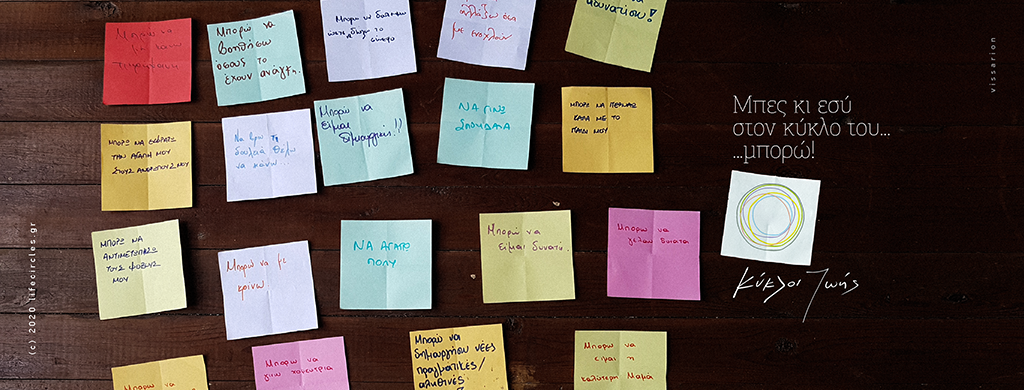 Μπορώ να
με κάνω
Μπορώ να
βοηθήσω
όσους το
έχουν ανάγκη.
Μπορώ να
αλλάζω ότι
με ενοχλούν
αδυνατίσω!
ΜΠΟΡΩ ΝΑ ΕΚΦΡΑΖΩ
ΤΗΝ ΑΓΑΠΗ ΜΟΥ
ΣΤΟΥΣ ΑΝΘΡΩΠΟΥΣ ΜΟΥ
Να βρω τη
δουλειά θέλω
να κάνω...
Μπορώ να
είμαι
δημιουργικός!!
ΝΑ ΓΙΝΩ
ΣΠΟΥΔΑΙΑ
ΜΠΟΡΩ ΝΑ ΠΕΡΝΑΩ
ΚΑΛΑ ΜΕ ΤΟ
ΠΑΙΔΙ ΜΟΥ
ΜΠΟΡΩ ΝΑ
ΑΝΤΙΜΕΤΩΠΙΖΩ
ΤΟΥΣ ΦΟΒΟΥΣ
ΜΟΥ
Μπορώ να με
κρίνω!
ΝΑ ΑΓΑΠΩ
ΠΟΛΥ
Μπορώ να
είμαι δυνατή.
Μπορώ να
γελάω δυνατά
Μπορώ να
Μπορώ να
γίνω
Μπορώ να
δημιουργήσω νέες
πραγματικές/
αληθινές
Μπορώ να
είμαι η
καλύτερη Μαμά
Μπες κι εσύ
στον κύκλο του...
...μπορώ!
Κύκλοι Ζωής
vissarion
(c) 2020 lifecircles.gr